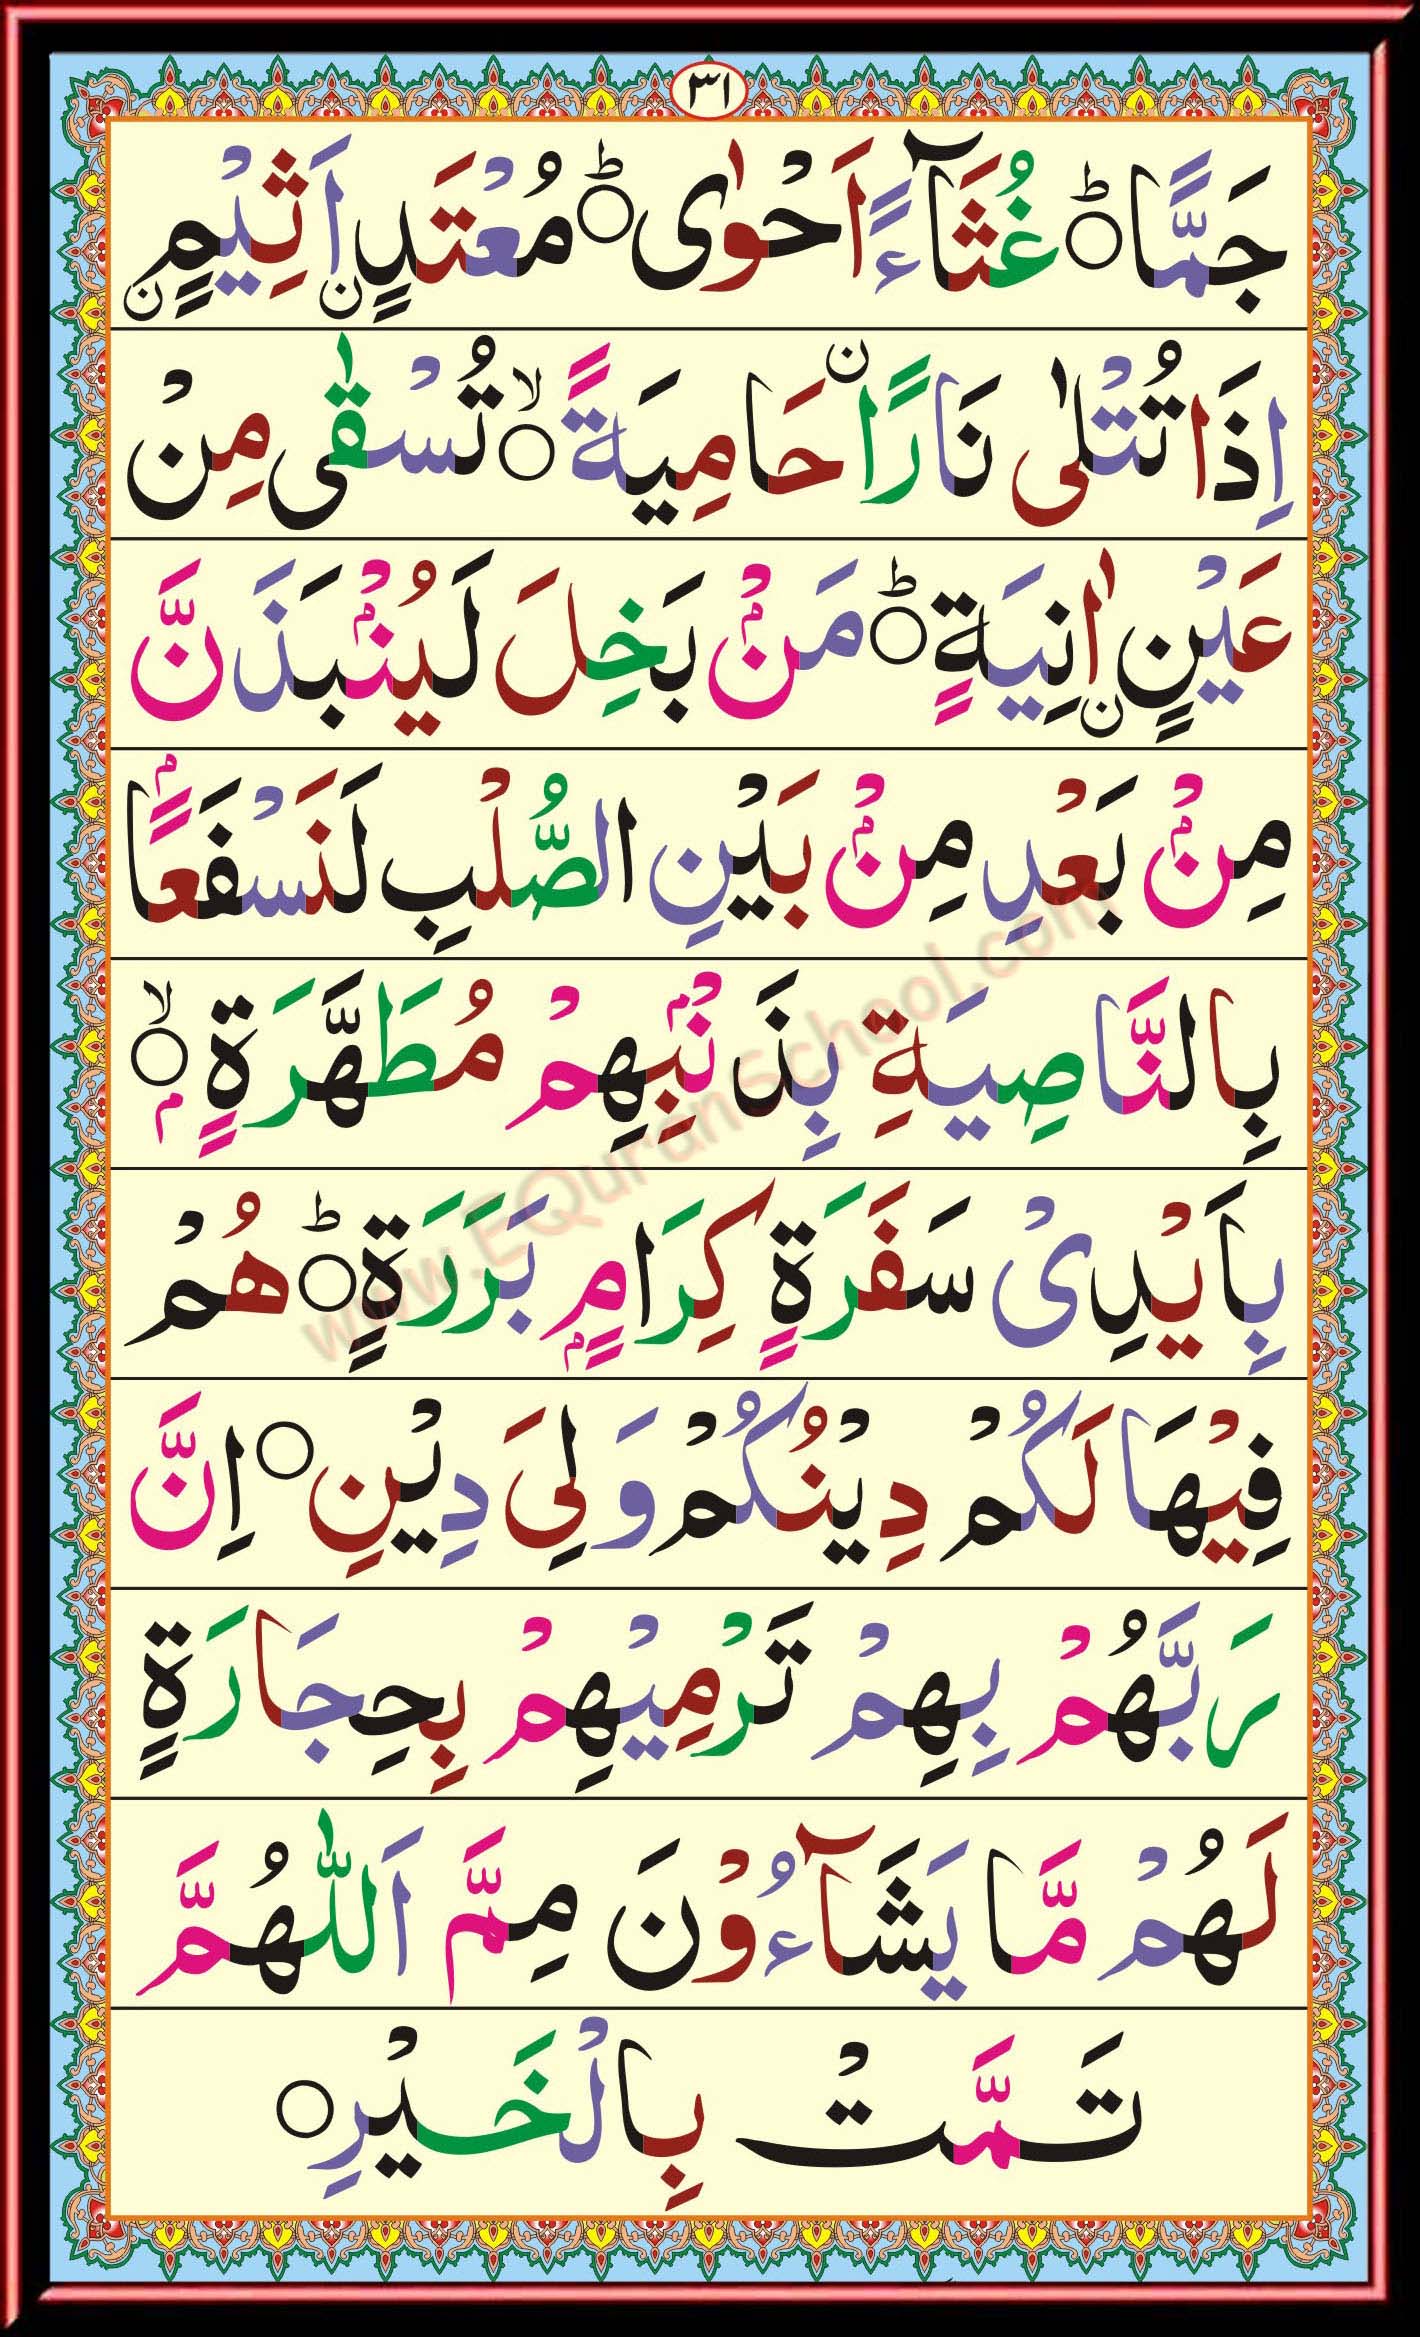 ٣١
جَمًّا ؕ غُثَآءً اَحْوٰى ؕ مُعْتَدٍ نِ اَثِيْمٍ ن
اِذَا تُتْلٰى نَارًا ن حَامِيَةً ۙ تُسْقٰى مِنْ
عَيْنٍ ن اٰنِيَةٍ ؕ مَنْۢ بَخِلَ لَيُنْۢبَذَنَّ
مِنْۢ بَعْدِ مِنْۢ بَيْنِ الصُّلْبِ لَنَسْفَعًاۢ
بِالنَّاصِيَةِ بِذَنْۢبِهِمْ مُطَهَّرَةٍ ۙم
بِاَيْدِىْ سَفَرَةٍ كِرَامٍۢ بَرَرَةٍ ؕ هُمْ
فِيْهَا لَكُمْ دِيْنُكُمْ وَلِىَ دِيْنِ ۝ اِنَّ
رَبَّهُمْ بِهِمْ تَرْمِيْهِمْ بِحِجَارَةٍ
لَهُمْ مَّا يَشَآءُوْنَ مِمَّ اَللّٰهُمَّ
تَمَّتْ بِالْخَيْرِ ۝
www.EQuranSchool.com